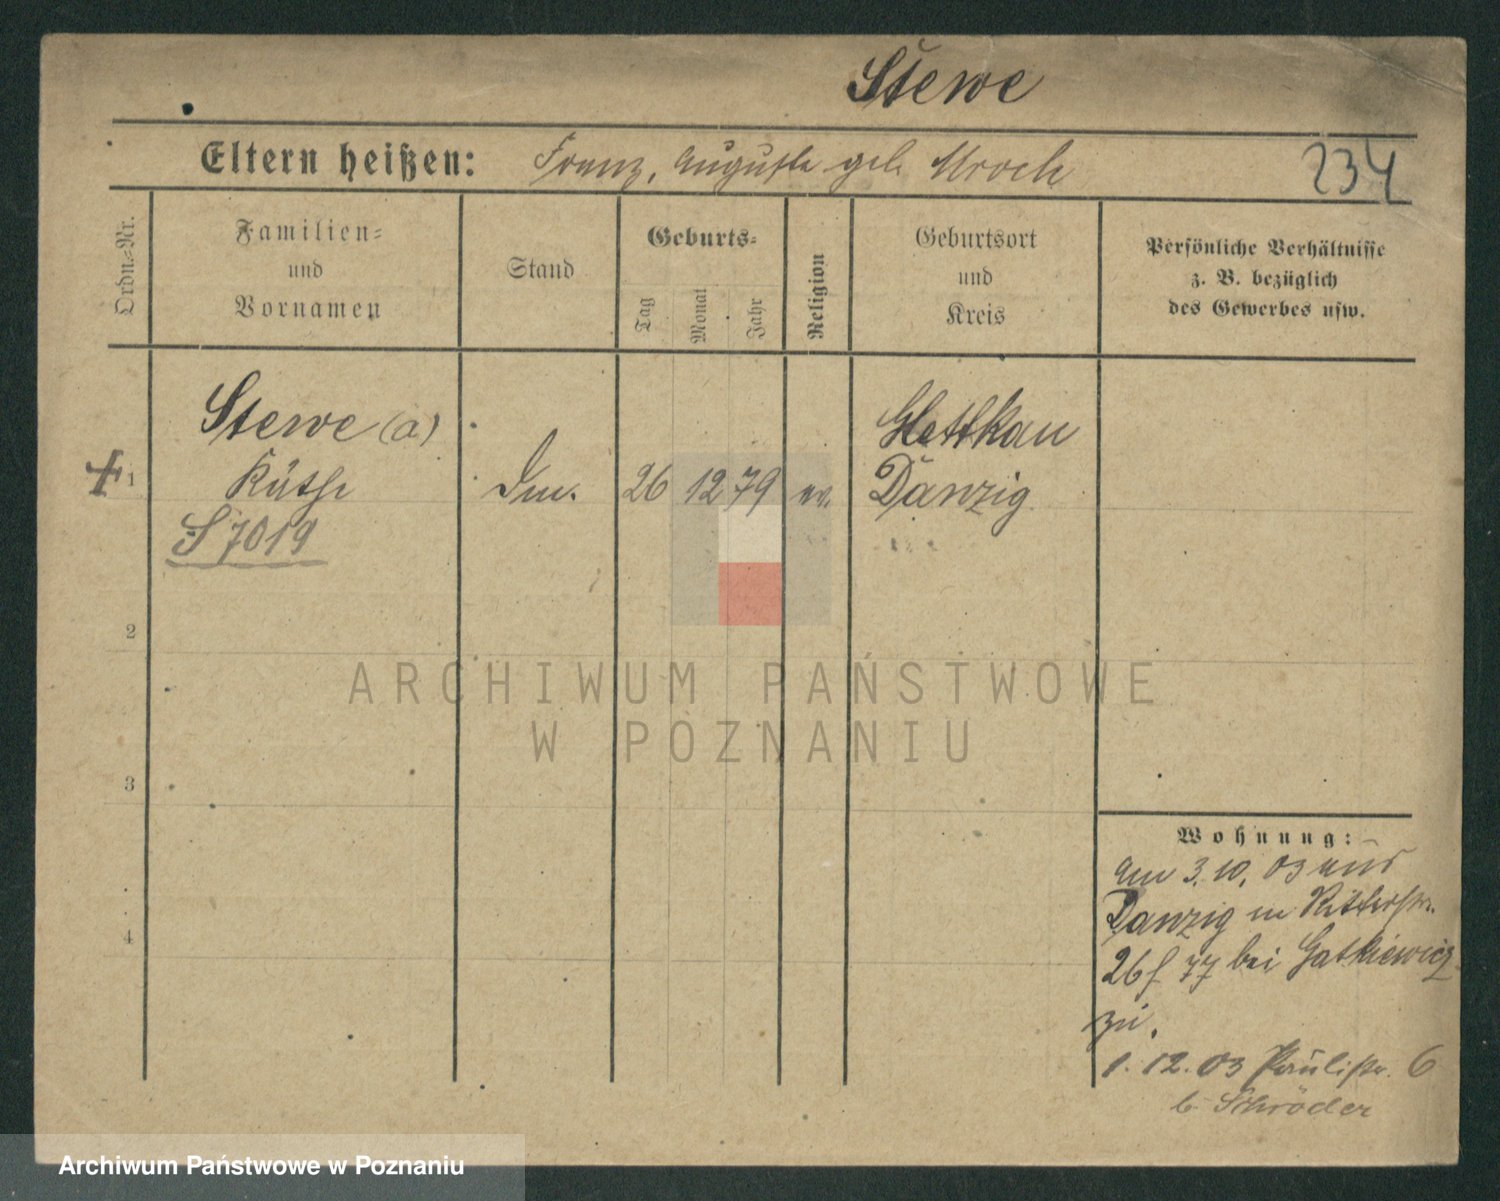 Stewe
Eltern heißen: Franz, Auguste geb. Mroch
234
Ordn.-Nr.
Familien-
und
Vornamen
Stand
Geburts-
Tag
Monat
Jahr
Religion
Geburtsort
und
Kreis
Persönliche Verhältnisse
z. B. bezüglich
des Gewerbes usw.
Stewe (a)
Käthe
S 7019
1
26 12 79
ev.
Glettkau
Danzig
2
3
4
Wohnung:
am 3. 10. 03 aus
Danzig in Ritterstr.
26 77 bei Gatkiewicz
zu.
1. 12. 03 Paulistr. 6
b. Schröder
ARCHIWUM PAŃSTWOWE
W POZNANIU
Archiwum Państwowe w Poznaniu